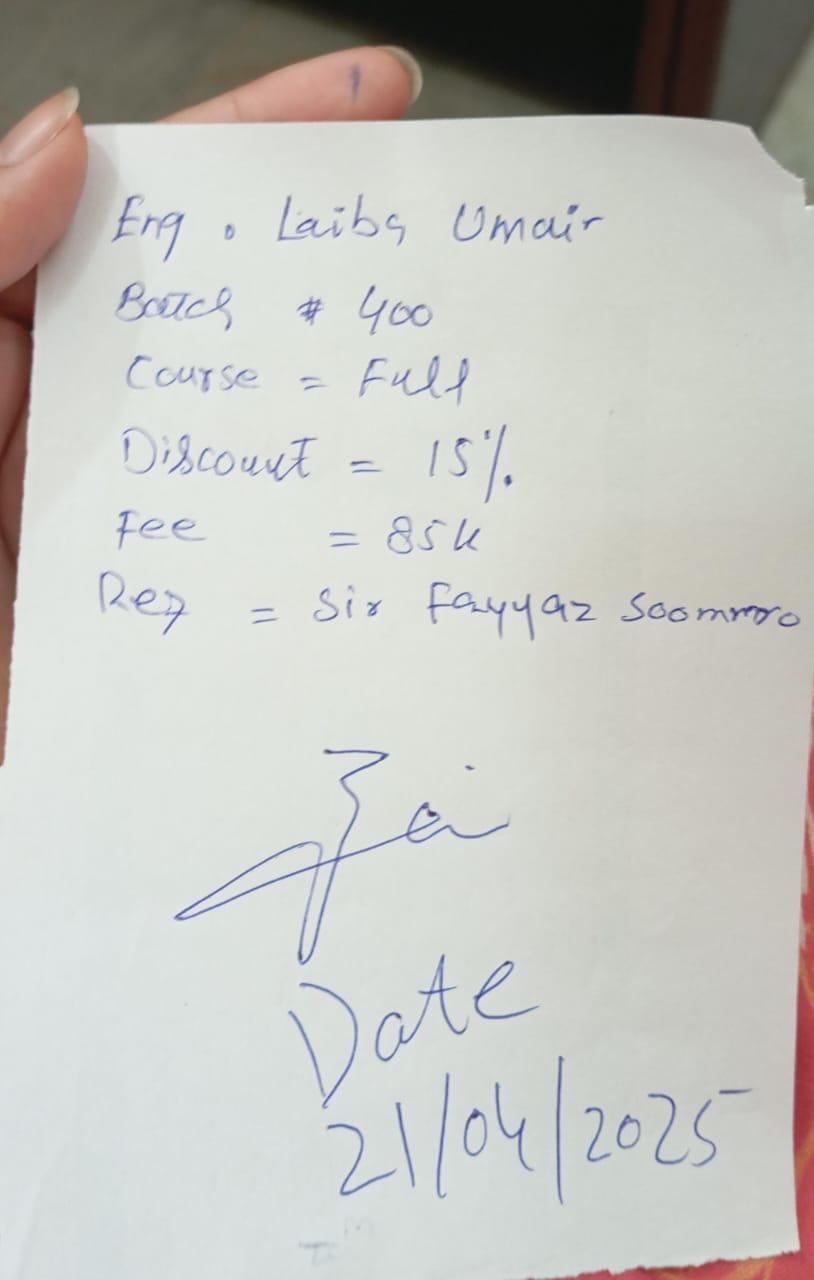 Eng. Laiba Umair
Batch # 400
Course = Full
Discount = 15%.
Fee = 85k
Ref = Sir Fayyaz Soomro
Date
21/04/2025